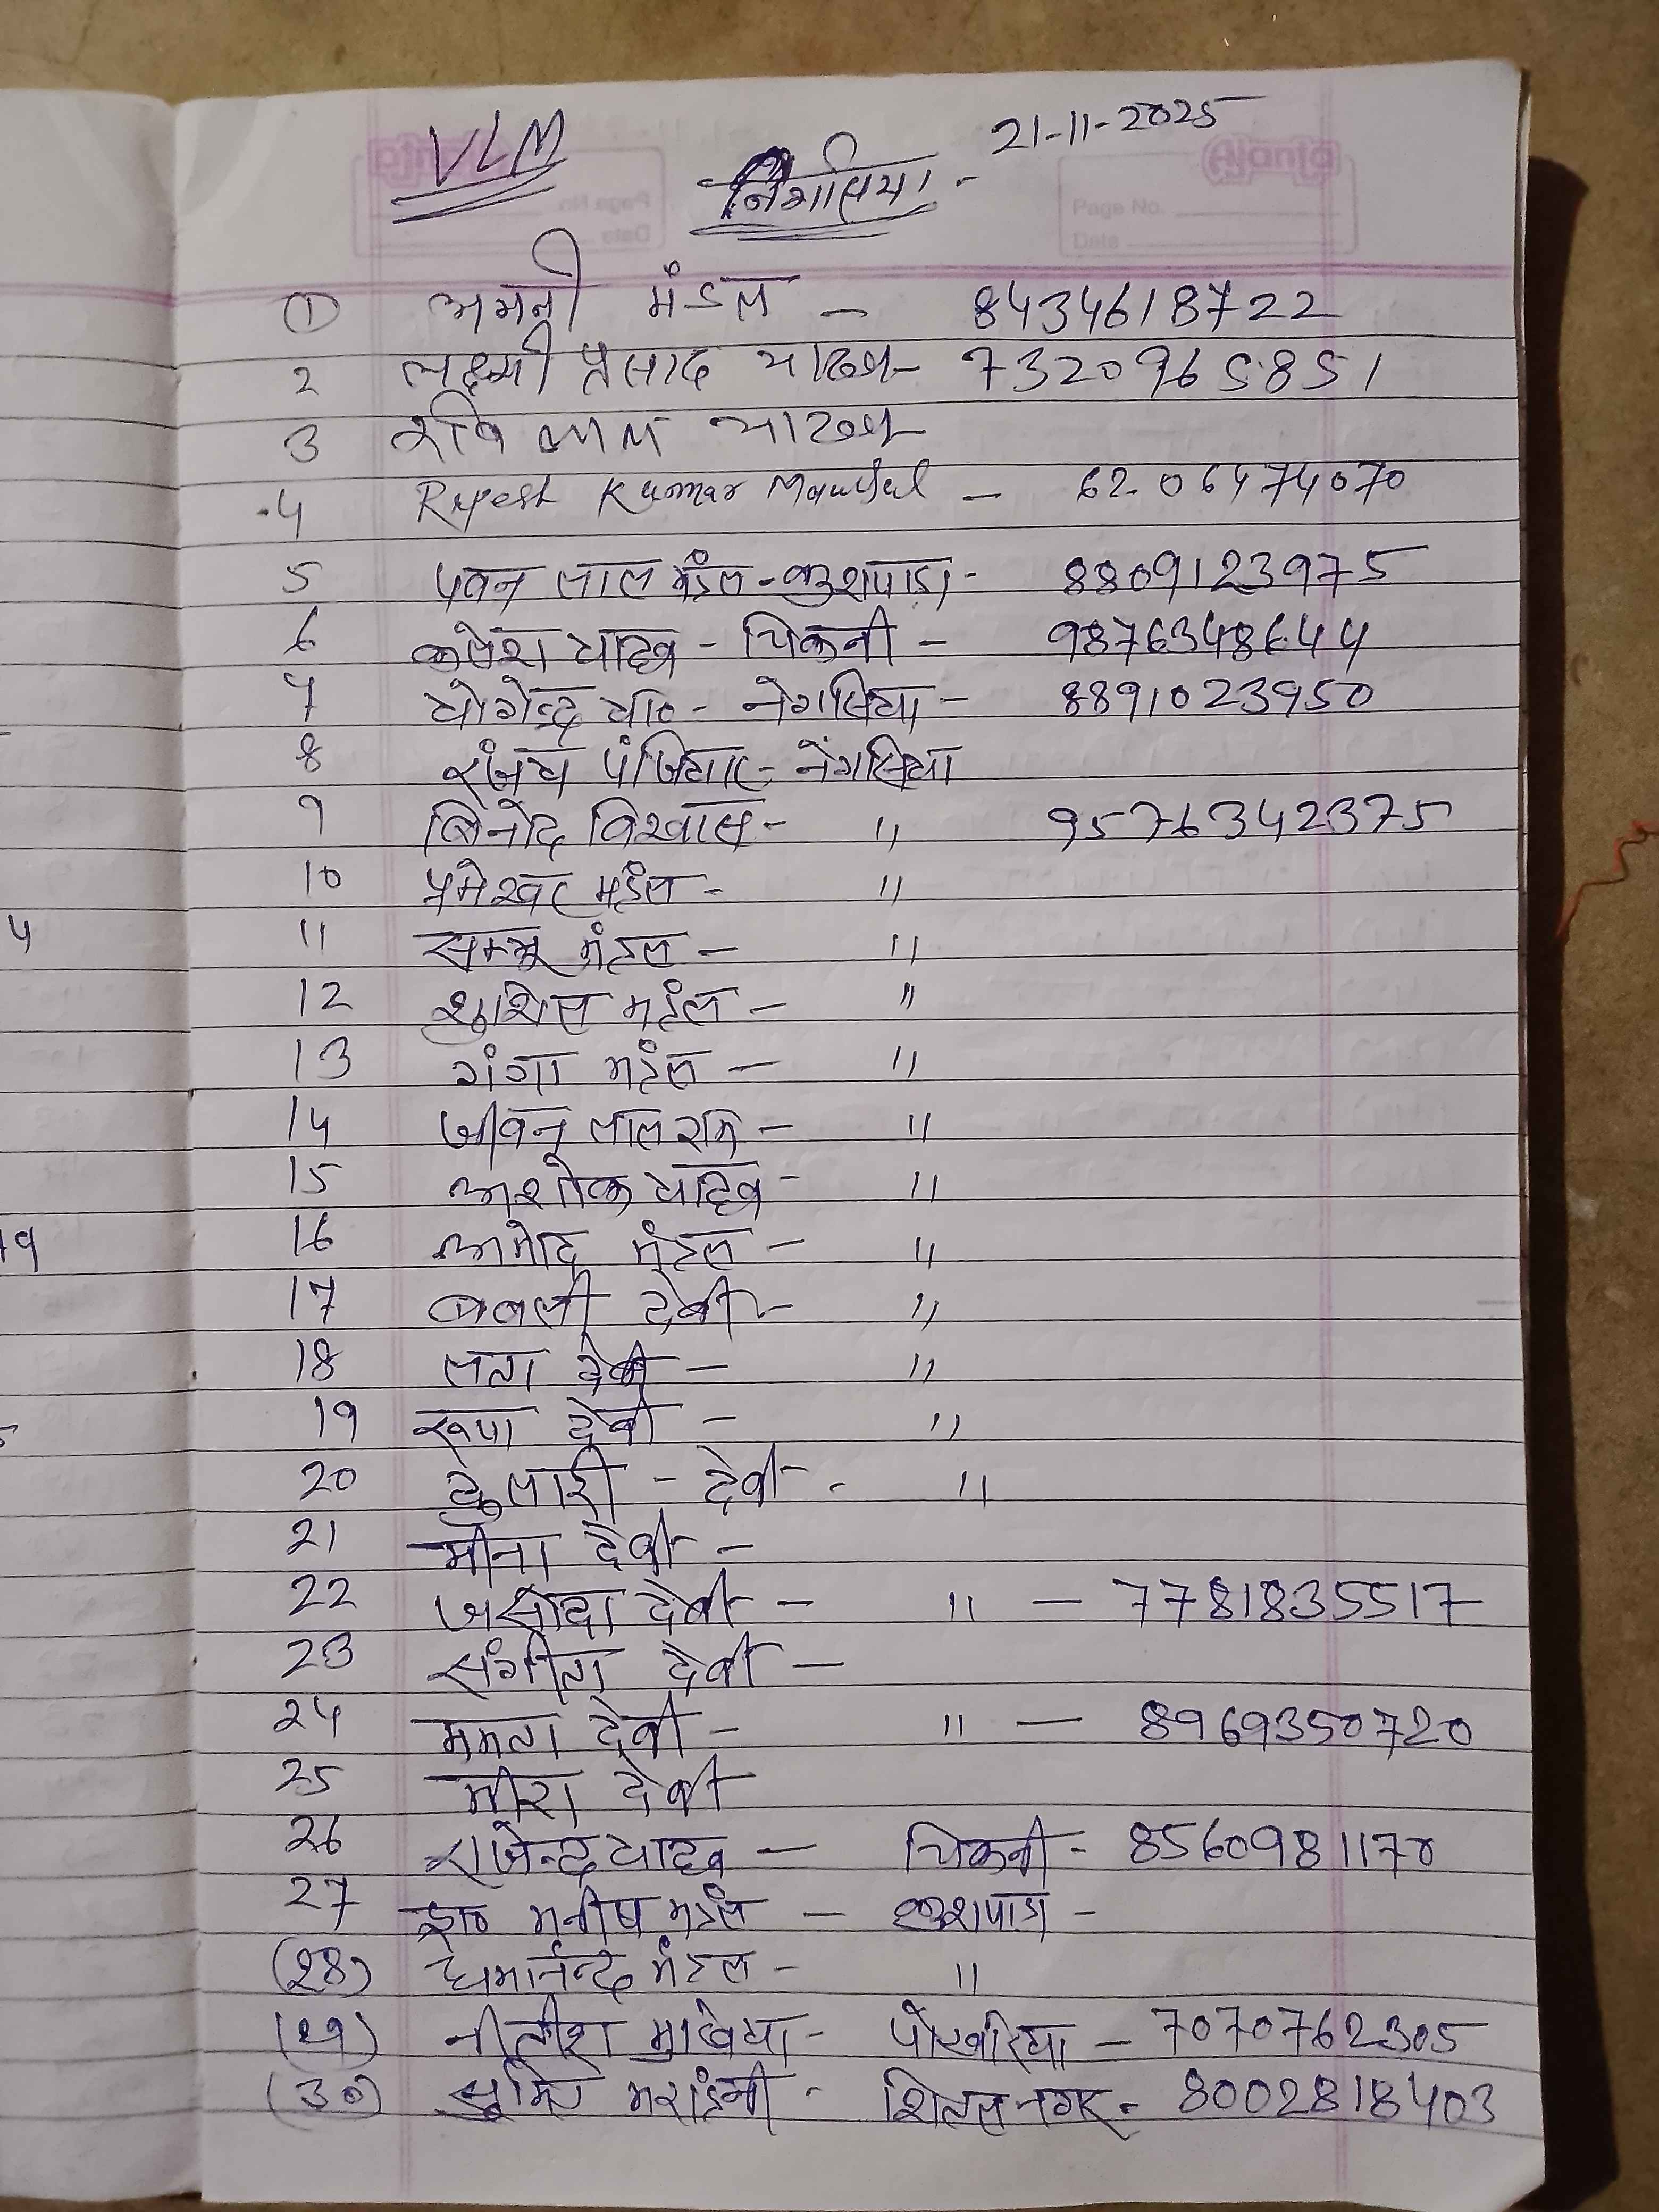 VLM
21-11-2025
नेगसिया -
① अमनी मंडल - 8434618722
2 लक्ष्मी प्रसाद यादव - 7320965851
3 रवि लाल यादव
4 Rupesh Kumar Mandal - 6206474070
5 पवन लाल मंडल - कुशपाडा - 8809123975
6 कलेश यादव - चिकनी - 9876348644
7 योगेन्द्र या० - नेगसिया - 8891023950
8 संजय पंजियार - नेंगसिया
9 बिनोद विश्वास - " 9576342375
10 प्रमेश्वर मंडल - "
11 सम्भू मंडल - "
12 शुशिल मंडल - "
13 गंगा मंडल - "
14 जीवन लाल राम - "
15 अशोक यादव - "
16 अमोद मंडल - "
17 बबली देवी - "
18 लता देवी - "
19 रूपा देवी - "
20 दुलारी - देवी - "
21 मीना देवी -
22 जसोदा देवी - " - 7781835517
23 संगीता देवी -
24 ममता देवी - " - 8969350720
25 मीरा देवी
26 राजेन्द्र यादव - चिकनी - 8560981170
27 डा० मनीष मंडल - कुशपाडा -
(28) धर्मानन्द मंडल - "
(29) नीतीश मुखिया - पोखरिया - 7070762305
(30) मरांडी - शितल नगर - 8002818403
Ajanta
Page No.
Date